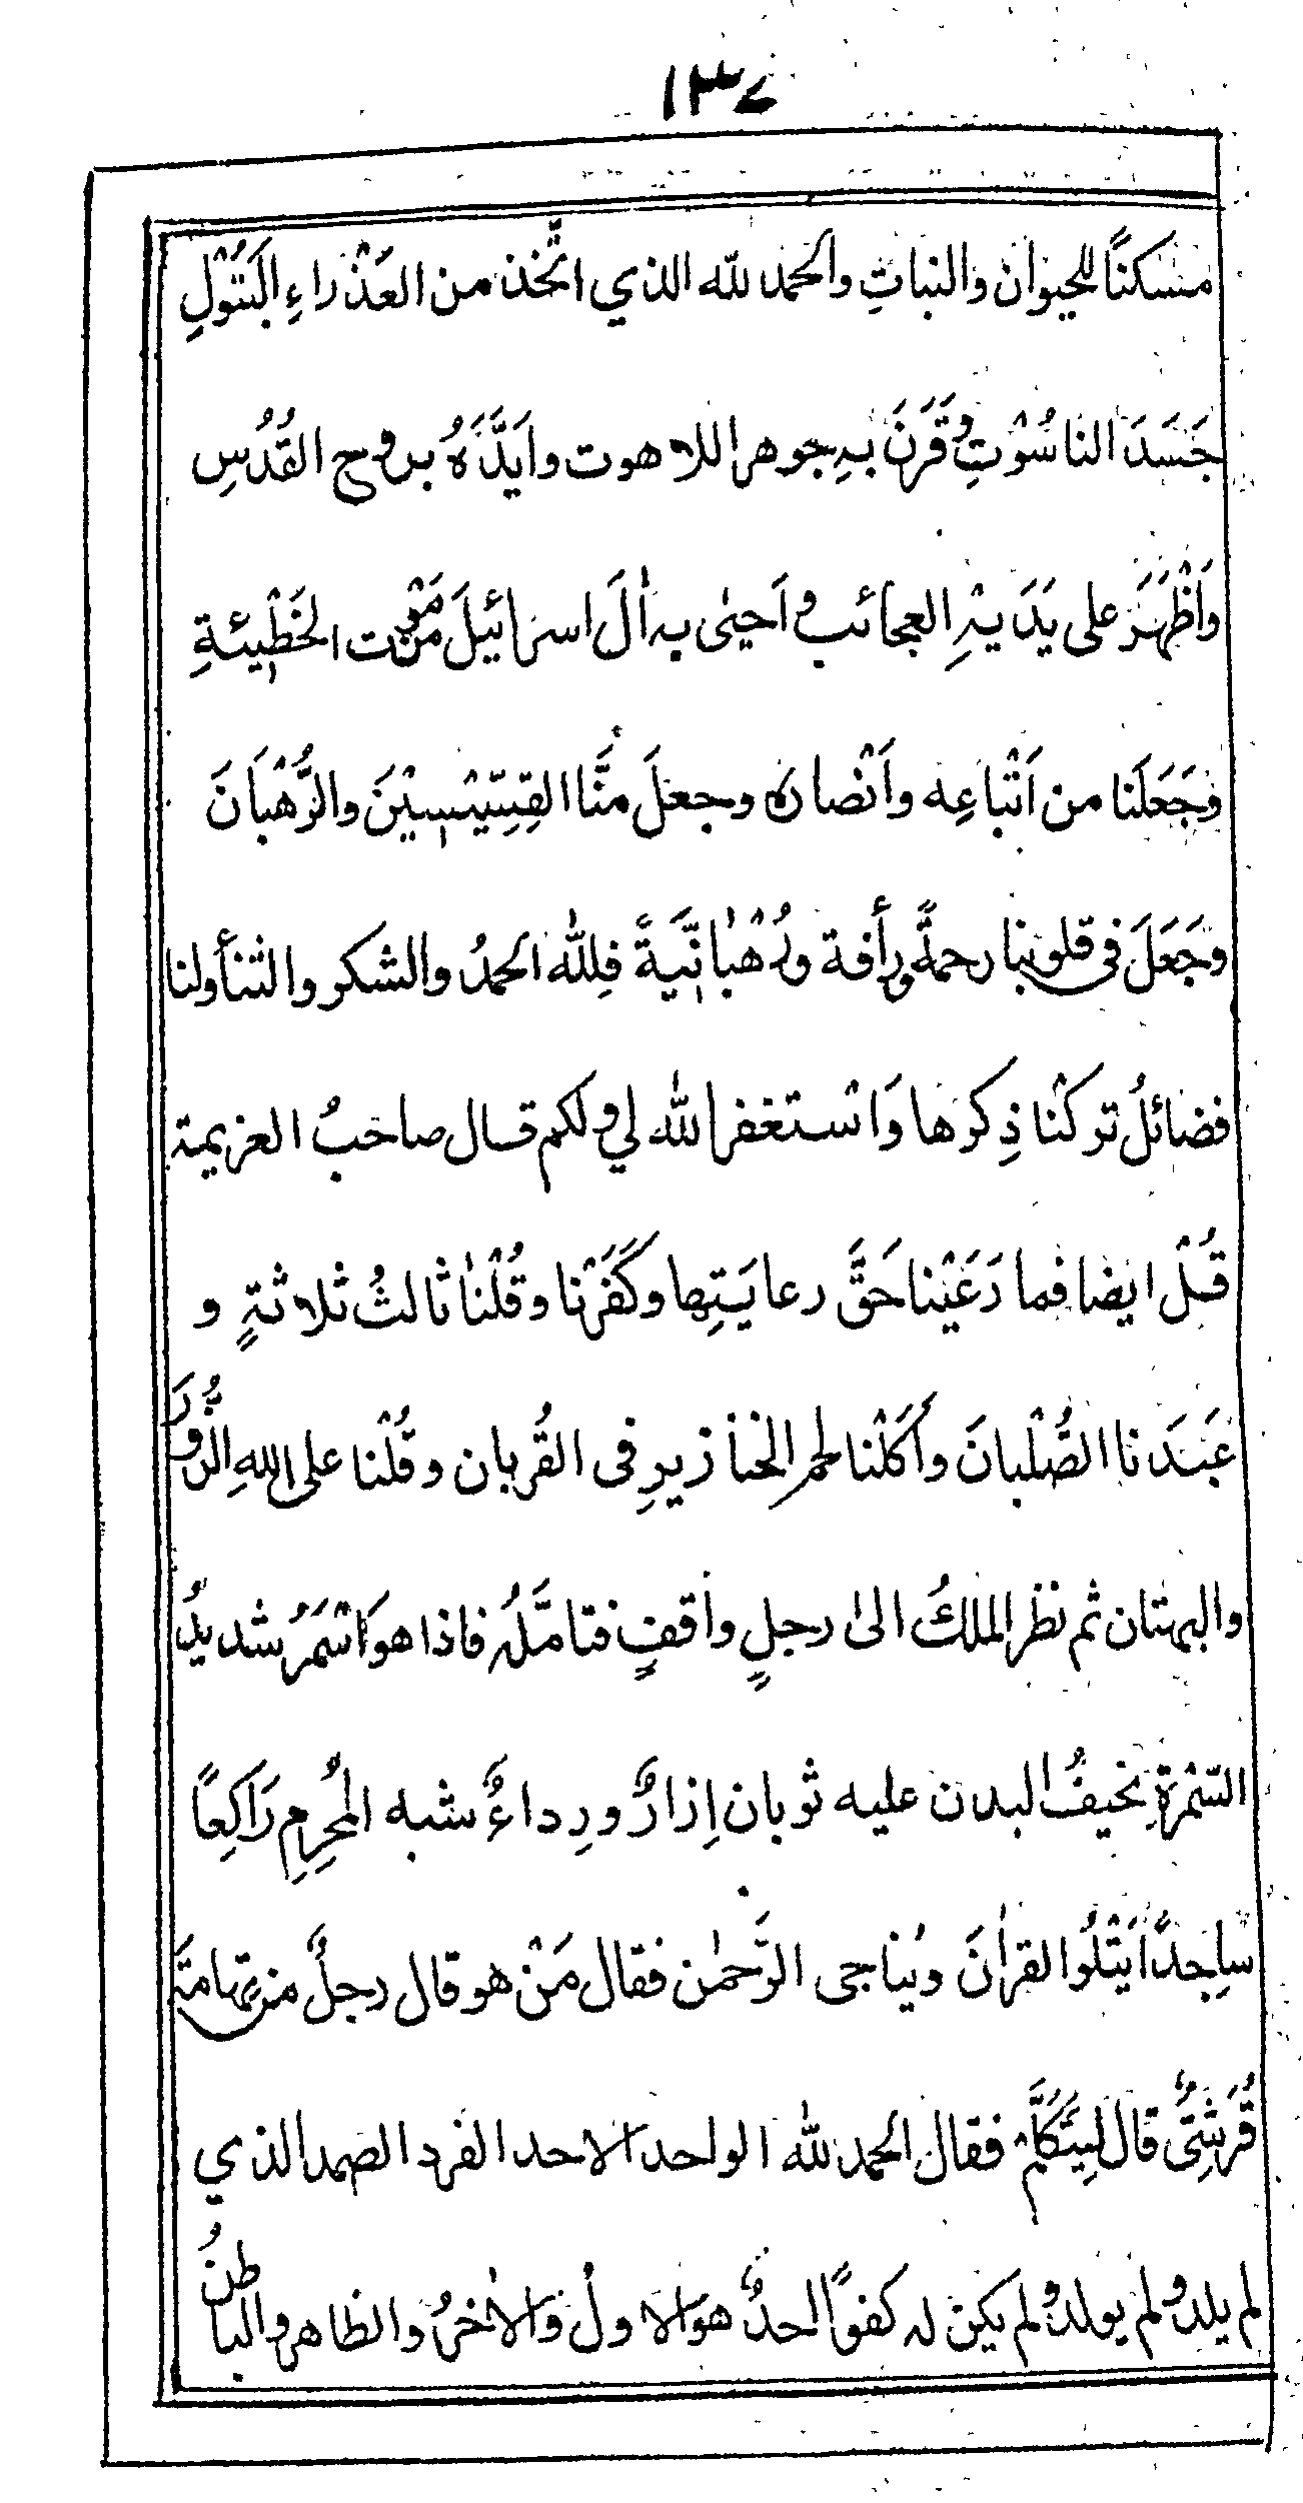 ١٣٧
مَسْكنًا للحيوان والنباتِ والحمد لله الذي اتَّخذ من العَذْراءِ البَتُوْلِ
جَسَدَ الناسُوْتِ وقَرَنَ بہِ جوهر اللاهوت وايَّدَهُ بروح القُدُسِ
وَاَظْهَرَ على يَدَيْہِ العجائب و اَحيٰى بہ اٰلَ اسرائيلَ من مَوْت الخَطْيئةِ
وَجَعَلَنا من اَتْباعِه واَنْصاره وجعلَ مِنَّا القِسِّيْسِيْنَ والرُّهْبَانَ
وَجَعَلَ فى قلوبنا رحمةً ورأفة ورُهْبانِيَّةً فلِلّٰه الحمدُ والشكر والثنأ ولنا
فضائلُ تركنا ذِكرَها وَاَسْتغفر الله لي ولكم قال صاحبُ العزيمة
قُلْ ايضا فما رَعَيْنا حَقَّ رعايَتِها وكَفَرْنا وقُلْنا ثالثُ ثلاثةٍ و
عَبَدَنا الصُّلْبانَ وأَكَلْنا لحم الخنازيرِ فى القُربان وقُلْنا على اللهِ الزُّوْرَ
والبهتان ثم نظر الملكُ الى رجلٍ واقفٍ فتامَّلَہُ فاذا هو اَسْمَرُ شديدُ
السَّمْرةِ نحيفُ البدن عليه ثوبان اِزارٌ ورِداءٌ شبه المُحْرِمِ رَاكِعًا
سَاجِدًا يَتْلُوا القراٰنَ ويُناجى الرَّحمٰن فقال مَنْ هو قال رجلٌ من تهامَة
قُرَشِىٌّ قال لِيَتَكَلَّمْ فقال الحمد لله الواحد الاحد الفرد الصمد الذي
لم يلد ولم يولد ولم يكن لہ كفوًا احدٌ هو الاول والاٰخرُ والظاهر والباطنُ